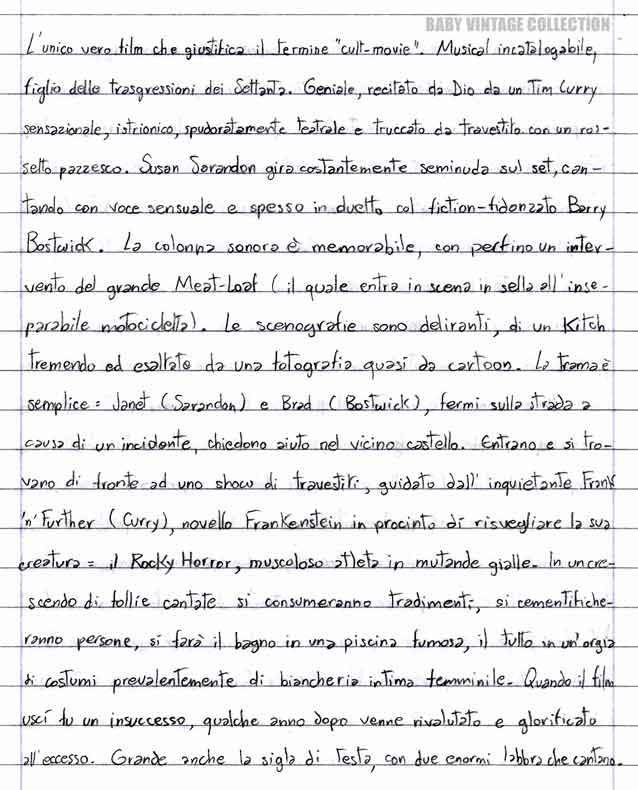 BABY VINTAGE COLLECTION
L'unico vero film che giustifica il termine "cult-movie". Musical incatalogabile,
figlio delle trasgressioni dei Settanta. Geniale, recitato da Dio da un Tim Curry
sensazionale, istrionico, spudoratamente teatrale e truccato da travestito con un ros-
setto pazzesco. Susan Sarandon gira costantemente seminuda sul set, can-
tando con voce sensuale e spesso in duetto col fiction-fidanzato Barry
Bostwick. La colonna sonora è memorabile, con perfino un inter-
vento del grande Meat-Loaf (il quale entra in scena in sella all'inse-
parabile motocicletta). Le scenografie sono deliranti, di un Kitch
tremendo ed esaltato da una fotografia quasi da cartoon. La trama è
semplice: Janet (Sarandon) e Brad (Bostwick), fermi sulla strada a
causa di un incidente, chiedono aiuto nel vicino castello. Entrano e si tro-
vano di fronte ad uno show di travestiti, guidato dall'inquietante Frank
'n' Further (Curry), novello Frankenstein in procinto di risvegliare la sua
creatura: il Rocky Horror, muscoloso atleta in mutande gialle. In un cre-
scendo di follie cantate si consumeranno tradimenti, si cementifiche-
ranno persone, si farà il bagno in una piscina fumosa, il tutto in un'orgia
di costumi prevalentemente di biancheria intima femminile. Quando il film
uscì fu un insuccesso, qualche anno dopo venne rivalutato e glorificato
all'eccesso. Grande anche la sigla di testa, con due enormi labbra che cantano.